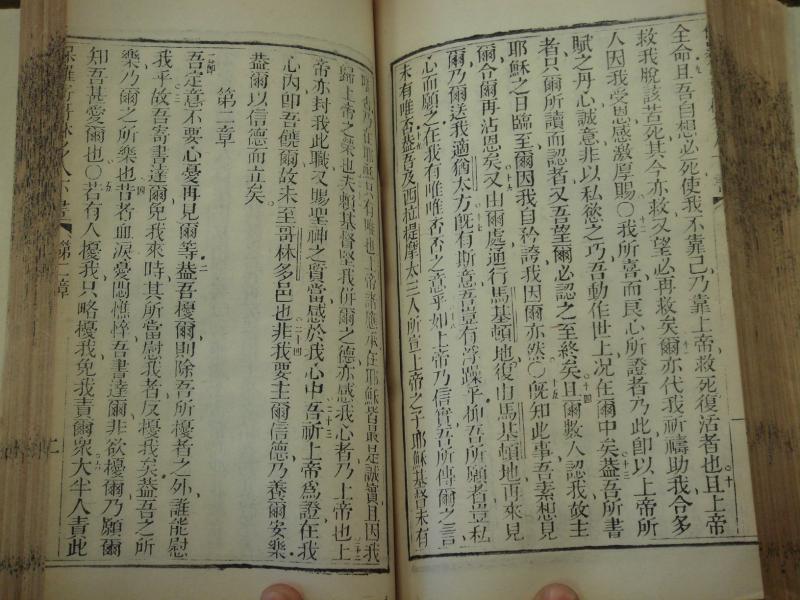 全命且吾自想必死使我不靠己乃靠上帝救死復活者也且上帝
救我脫該苦死其今亦救又望必再救矣爾亦代我祈禱助我合多
人因我受恩感激厚賜〇我所喜而良心所證者乃此即以上帝所
賦之丹心誠意非以私慾之巧吾動作世上況在爾中矣葢吾所書
者只爾所讀而認者又吾望爾必認之至終矣且爾數人認我故主
耶穌之日臨至爾因我自矜誇我因爾亦然〇旣知此事吾素想見
爾合爾再沾恩矣又由爾處通行馬基頓地復由馬基頓地再來見
爾乃爾送我適猶太方旣有斯意吾豈有浮躁乎抑吾所願者豈私
心而願之在我有唯唯否否之意乎如上帝乃信實吾所傳爾之言
未有唯否葢吾及西拉提摩太三人所宣上帝之子耶穌基督未有
唯否乃在耶穌只有唯也上帝諸應承在耶穌皆最是誠實且因我
歸上帝之榮也夫賴基督堅我併爾之德亦感我心者乃上帝也上
帝亦封我此職又賜聖神之質當感於我心中吾祈上帝為證在我
心內即吾饒爾故未至哥林多邑也非我要主爾信德乃養爾安樂
葢爾以信德而立矣
第二章
吾定意不要心憂再見爾等葢吾擾爾則除吾所擾者之外誰能慰
我乎故吾寄書達爾免我來時其所當慰我者反擾我矣葢吾之所
樂乃爾之所樂也昔者血淚憂悶憔悴吾書達爾非欲擾爾乃願爾
知吾甚愛爾也〇若有人擾我只略擾我免我責爾衆大半人責此
第二章